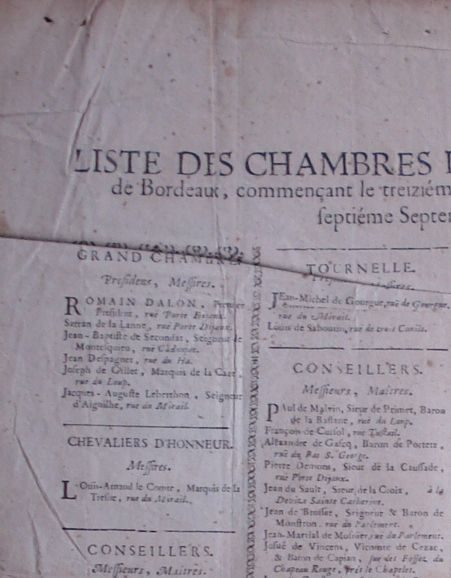 LISTE DES CHAMBRES
de Bordeaux, commençant le treiziém
septiéme Septe
GRAND CHAMB
Presidens, Messires.
ROMAIN DALON, Premier
President, rue Porte Dijeaux.
Sarran de la Lanne, rue Porte Dijeaux.
Jean-Baptiste de Secondat, Seigneur de
Montesquieu,
Jean Despagnet, rue du Ha.
Joseph de Gillet, Marquis de la Caze,
rue du Loup.
Jacques-Auguste Leberthon, Seigneur
d'Aiguilhe, rue du Mirail.
CHEVALIERS D'HONNEUR.
Messires.
LOuis-Arnaud le Comte, Marquis de la
Tresne, rue du Mirail.
CONSEILLERS.
Messieurs, Maîtres.
TOURNELLE.
JEan-Michel de Gourgue, rue de Gourgue.
rue du Mirail.
Louis de Sabourin, rue de trois Conils.
CONSEILLERS.
Messieurs, Maîtres.
PAul de Malvin, Sieur de Primet, Baron
de la Bastane, rue du Loup.
François de Cursol, rue
Alexandre de Gascq, Baron de Portets,
rue du Pas S. George.
Pierre Demons, Sieur de la Caussade,
rue Porte Dijeaux.
Jean du Sault, Sieur de la Croix, à la
Devize Sainte Catherine.
Jean de Brosse, Seigneur & Baron de
Monstron, rue du Parlement.
Jean-Martial de rue du Parlement.
Josué de Vincens, Vicomte de Cezac,
& Baron de Capian, sur des Fossez du
Chapeau Rouge, prés le Chapelet.